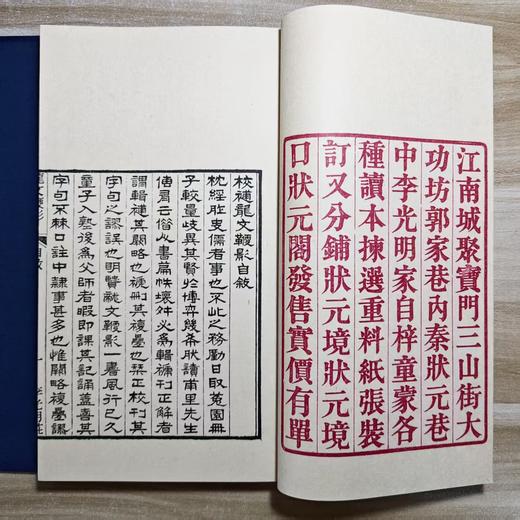 江南城聚寶門三山街大
功坊郭家巷內秦狀元巷
中李光明家自梓童蒙各
種讀本揀選重料紙張裝
訂又分鋪狀元境狀元境
口狀元閣發售實價有單
校補龍文鞭影自敘
枕經胙史儒者事也不此之務勤日取菟園冊
子較量歧異其賢於博弈幾希狀讀甫里先生
傳有云借人書篇帙壞舛必為輯褫刊正解者
謂輯補其闕略也褫刪其複疊也栞正校刊其
字句之誤也明賢龍文鞭影一書風行已久
童子入塾後為父師者暇即課其記誦蓋喜其
字句不棘口註中隸事甚多也惟闕略複疊
自敘